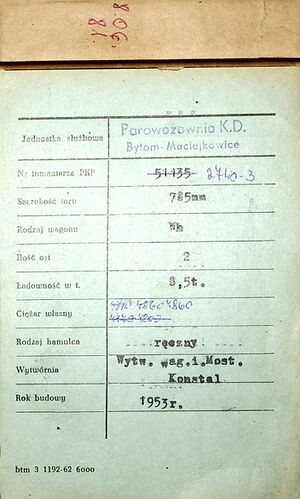 8.06.
81
Jednostka służbowa
Parowozownia K.D.
Bytom-Maciejkowice
Nr inwentarza PKP 51135 2740-3
Szerokość toru 785mm
Rodzaj wagonu Wh
Ilość osi 2
Ładowność w t. 8,5t.
Ciężar własny 4860 4860
Rodzaj hamulca ręczny
Wytwórnia Wytw. wag.i.Most.
Konstal
Rok budowy 1953r.
btm 3 1192-62 6000